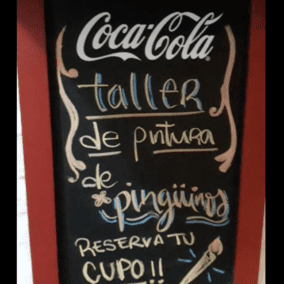 Coca-Cola
taller
de pintura
de
pingüinos
RESERVA TU
CUPO!!